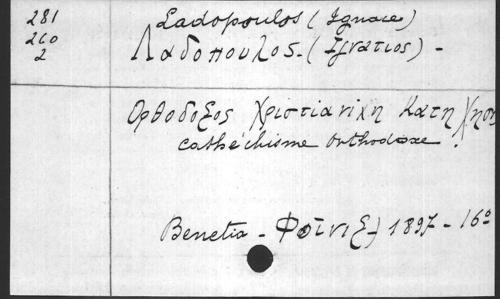 281
260
2
Ladopoulos (Ignace)
Λαδοπουλος. (Ιγνατιος) -
Ορθοδοξος Χριστιανικη Κατηχησι
cathéchisme orthodoxe.
Benetia - Φοίνιξ) 1897 - 16º